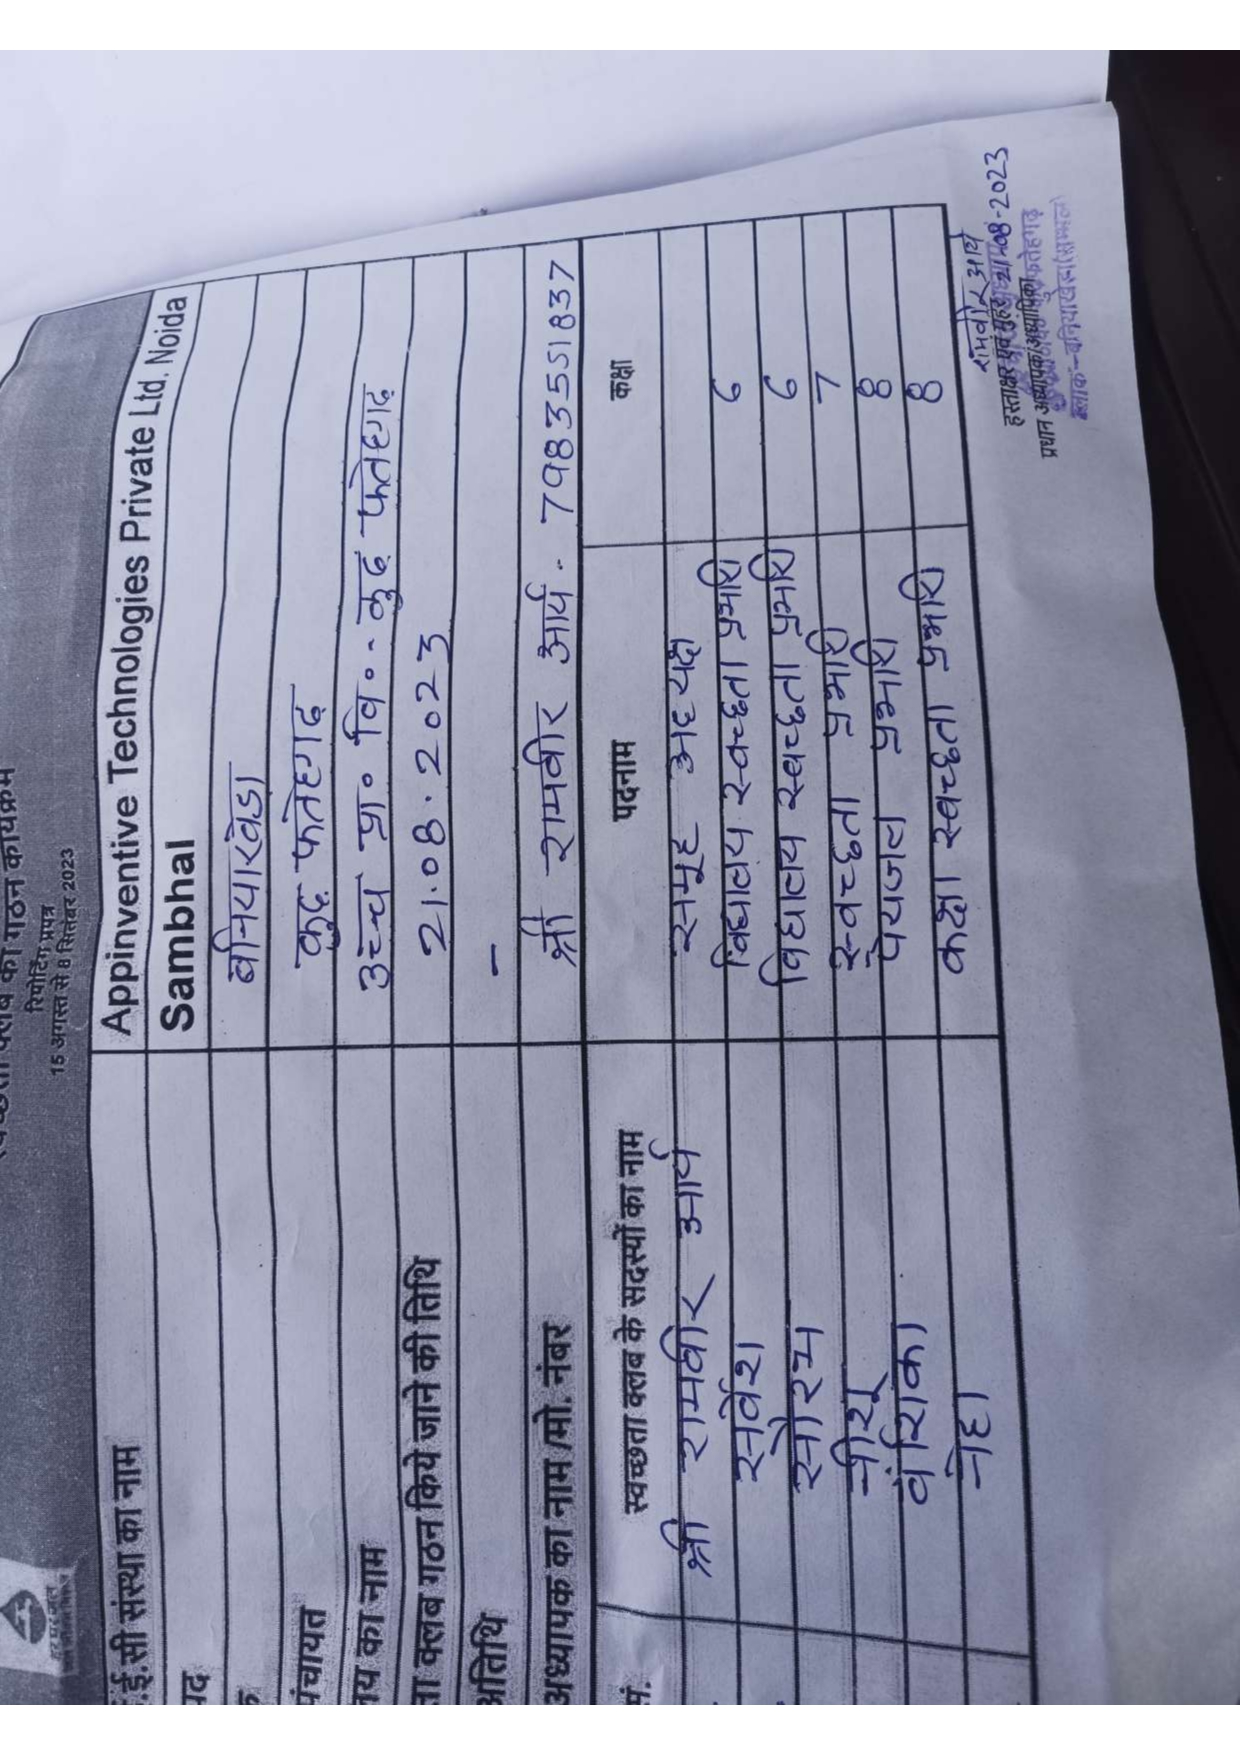 क्लब का गठन कार्यक्रम
रिपोर्टिंग प्रपत्र
15 अगस्त से 8 सितंबर 2023
.ई.सी संस्था का नाम Appinventive Technologies Private Ltd. Noida
पद Sambhal
क बनियाखेडा
पंचायत कुढ फतेहगढ
लय का नाम उच्च प्रा० वि०- कुढ फतेहगढ
ता क्लब गठन किये जाने की तिथि 21.08.2023
अतिथि -
अध्यापक का नाम /मो. नंबर श्री रामवीर आर्य. 7983551837
सं. स्वच्छता क्लब के सदस्यों का नाम पदनाम कक्षा
श्री रामवीर आर्य समूह अध्यक्ष
सर्वेश विद्यालय स्वच्छता प्रभारी 6
सोरम विद्यालय स्वच्छता प्रभारी 6
नीशू स्वच्छता प्रभारी 7
वंशिका पेयजल प्रभारी 8
नेहा कक्षा स्वच्छता प्रभारी 8
रामवीर आर्य
21-08-2023
हस्ताक्षर एवं मुहर
प्रधान अध्यापक/अध्यापिका
ब्लाक-बनियाखेडा(सम्भल)